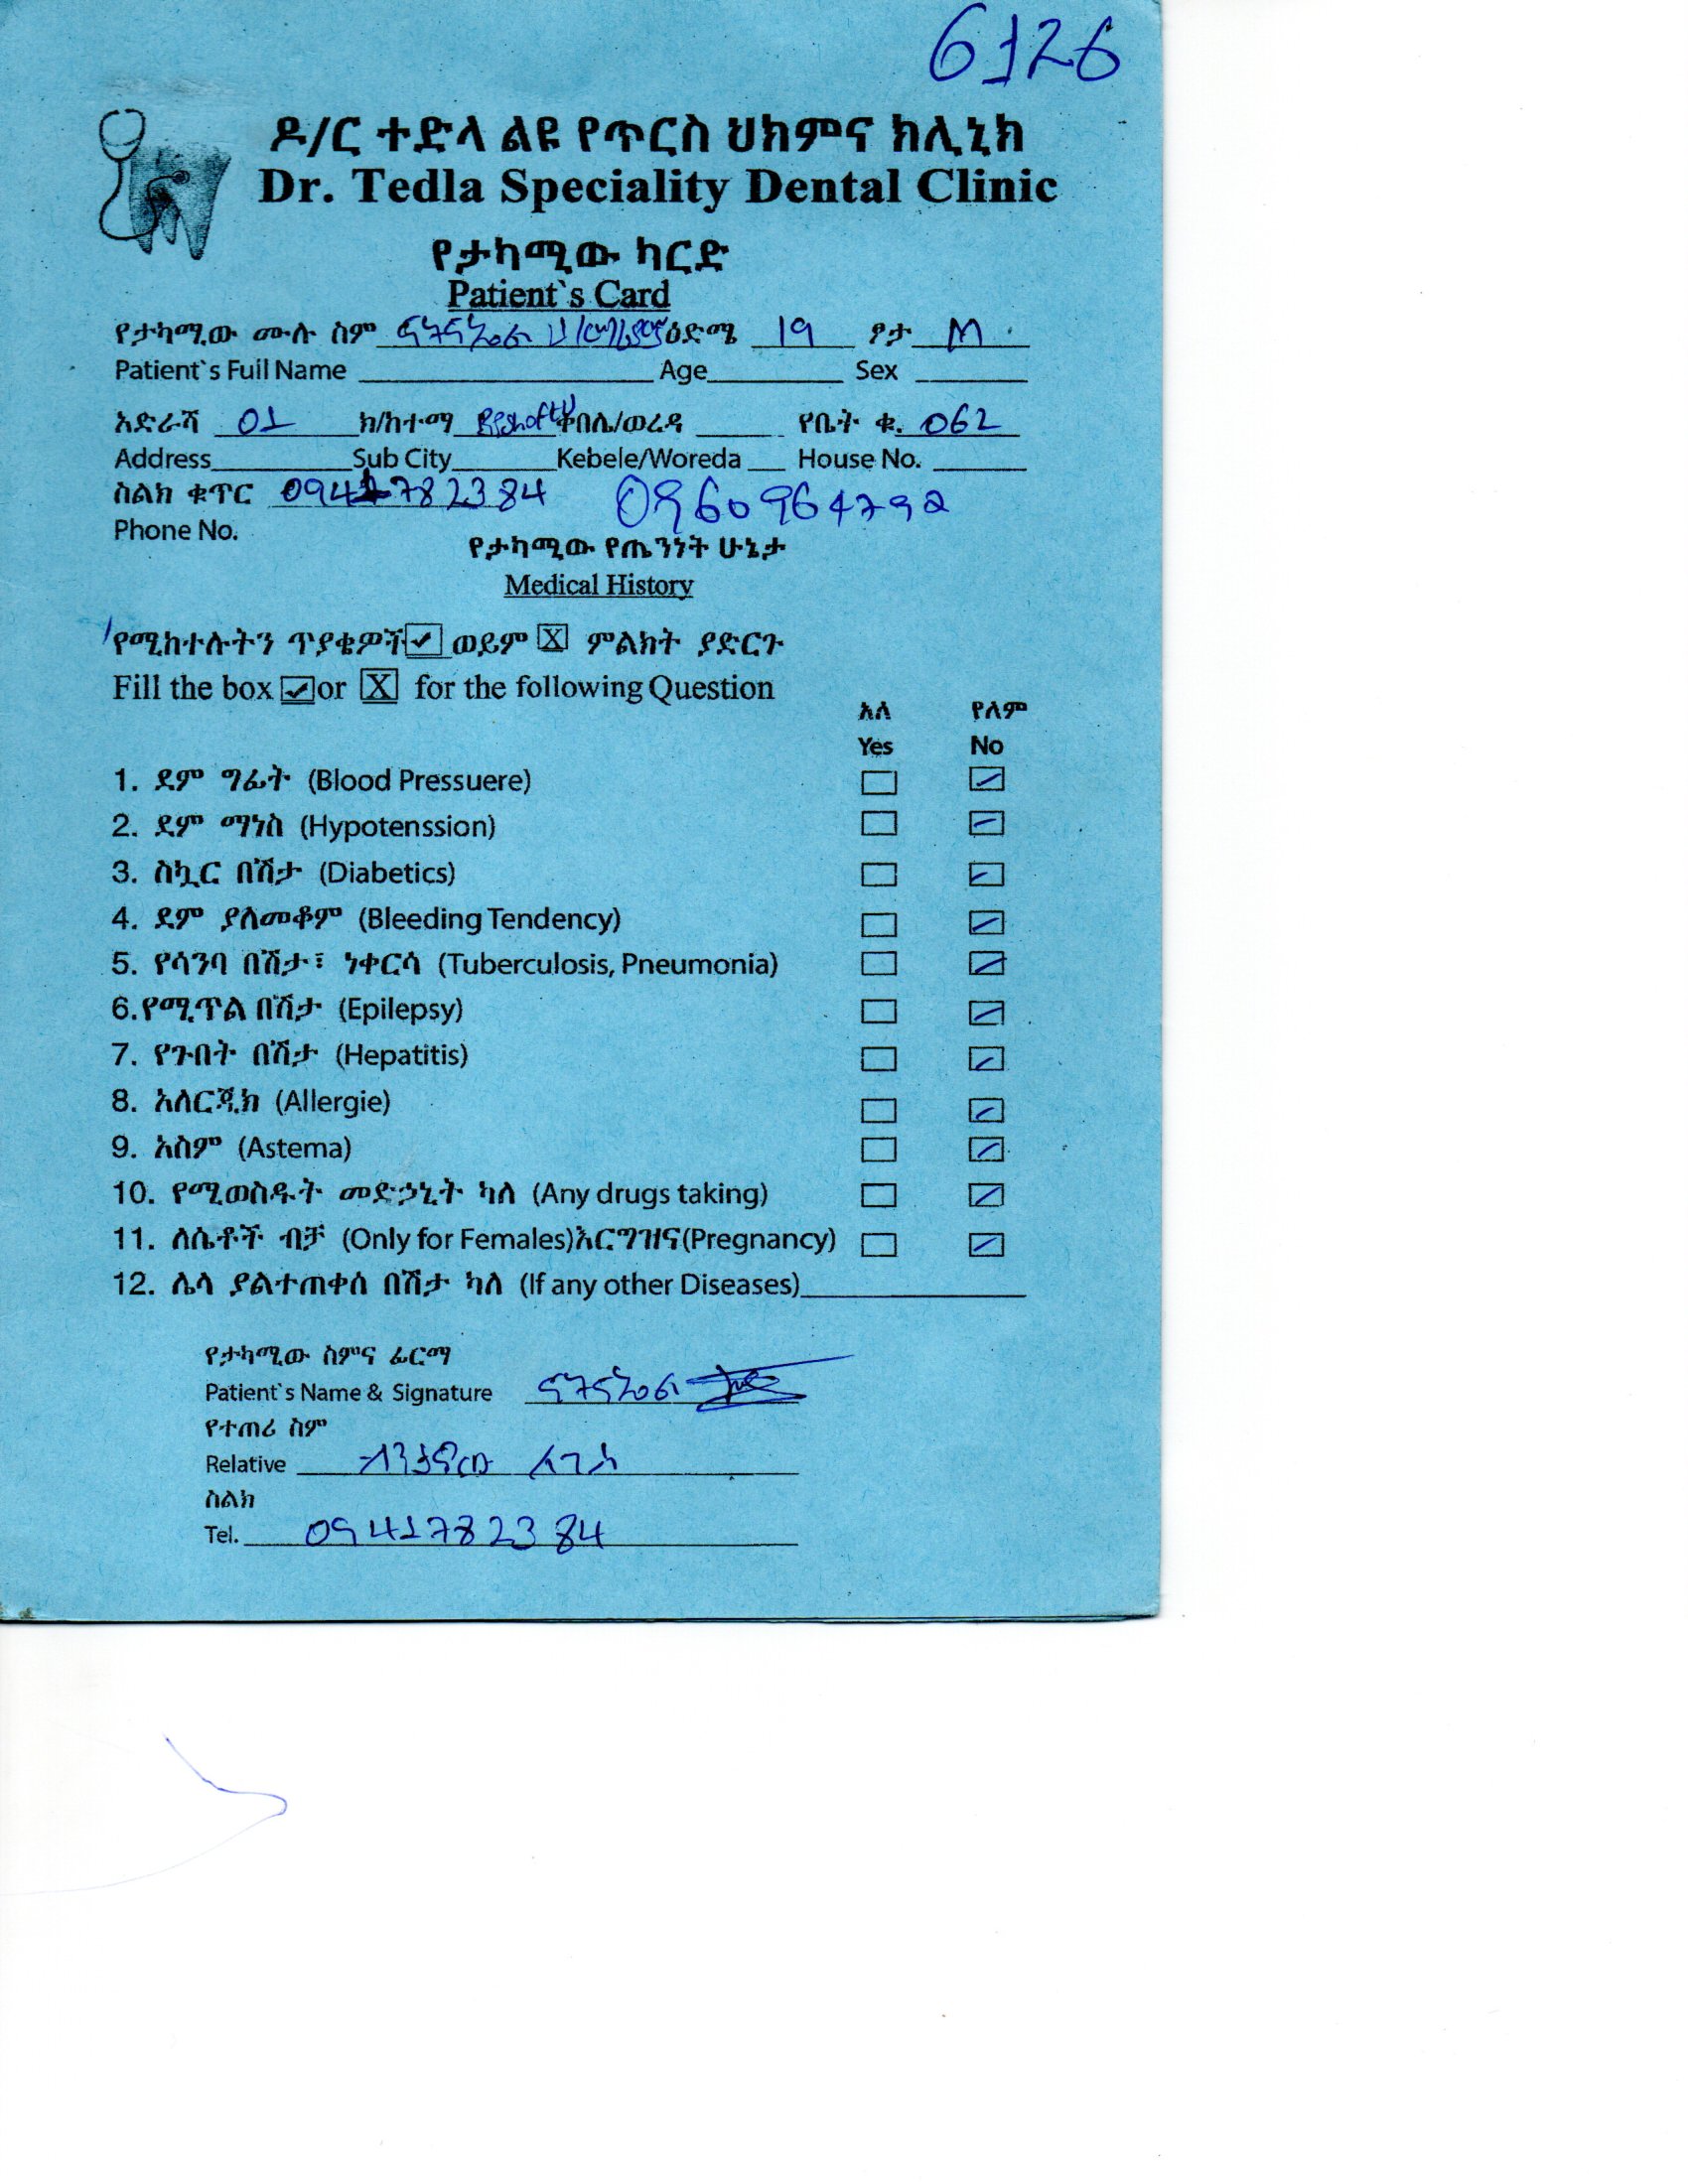 6126
ዶ/ር ተድላ ልዩ የጥርስ ህክምና ክሊኒክ
Dr. Tedla Speciality Dental Clinic
የታካሚው ካርድ
Patient`s Card
የታካሚው ሙሉ ስም ናትናኤል ዕድሜ 19 ፆታ M
Patient`s Full Name Age Sex
አድራሻ 01 ክ/ከተማ Bishoftu ቀበሌ/ወረዳ የቤት ቁ. 062
Address Sub City Kebele/Woreda House No.
ስልክ ቁጥር 0941782384 0960964792
Phone No.
የታካሚው የጤንነት ሁኔታ
Medical History
የሚከተሉትን ጥያቄዎች ✓ ወይም X ምልክት ያድርጉ
Fill the box ✓ or X for the following Question
አለ የለም
Yes No
1. ደም ግፊት (Blood Pressuere)
2. ደም ማነስ (Hypotenssion)
3. ስኳር በሽታ (Diabetics)
4. ደም ያለመቆም (Bleeding Tendency)
5. የሳንባ በሽታ፣ ነቀርሳ (Tuberculosis, Pneumonia)
6. የሚጥል በሽታ (Epilepsy)
7. የጉበት በሽታ (Hepatitis)
8. አለርጂክ (Allergie)
9. አስም (Astema)
10. የሚወስዱት መድኃኒት ካለ (Any drugs taking)
11. ለሴቶች ብቻ (Only for Females)እርግዝና(Pregnancy)
12. ሌላ ያልተጠቀሰ በሽታ ካለ (If any other Diseases)
የታካሚው ስምና ፊርማ
Patient`s Name & Signature ናትናኤል
የተጠሪ ስም
Relative
ስልክ
Tel. 0941782384